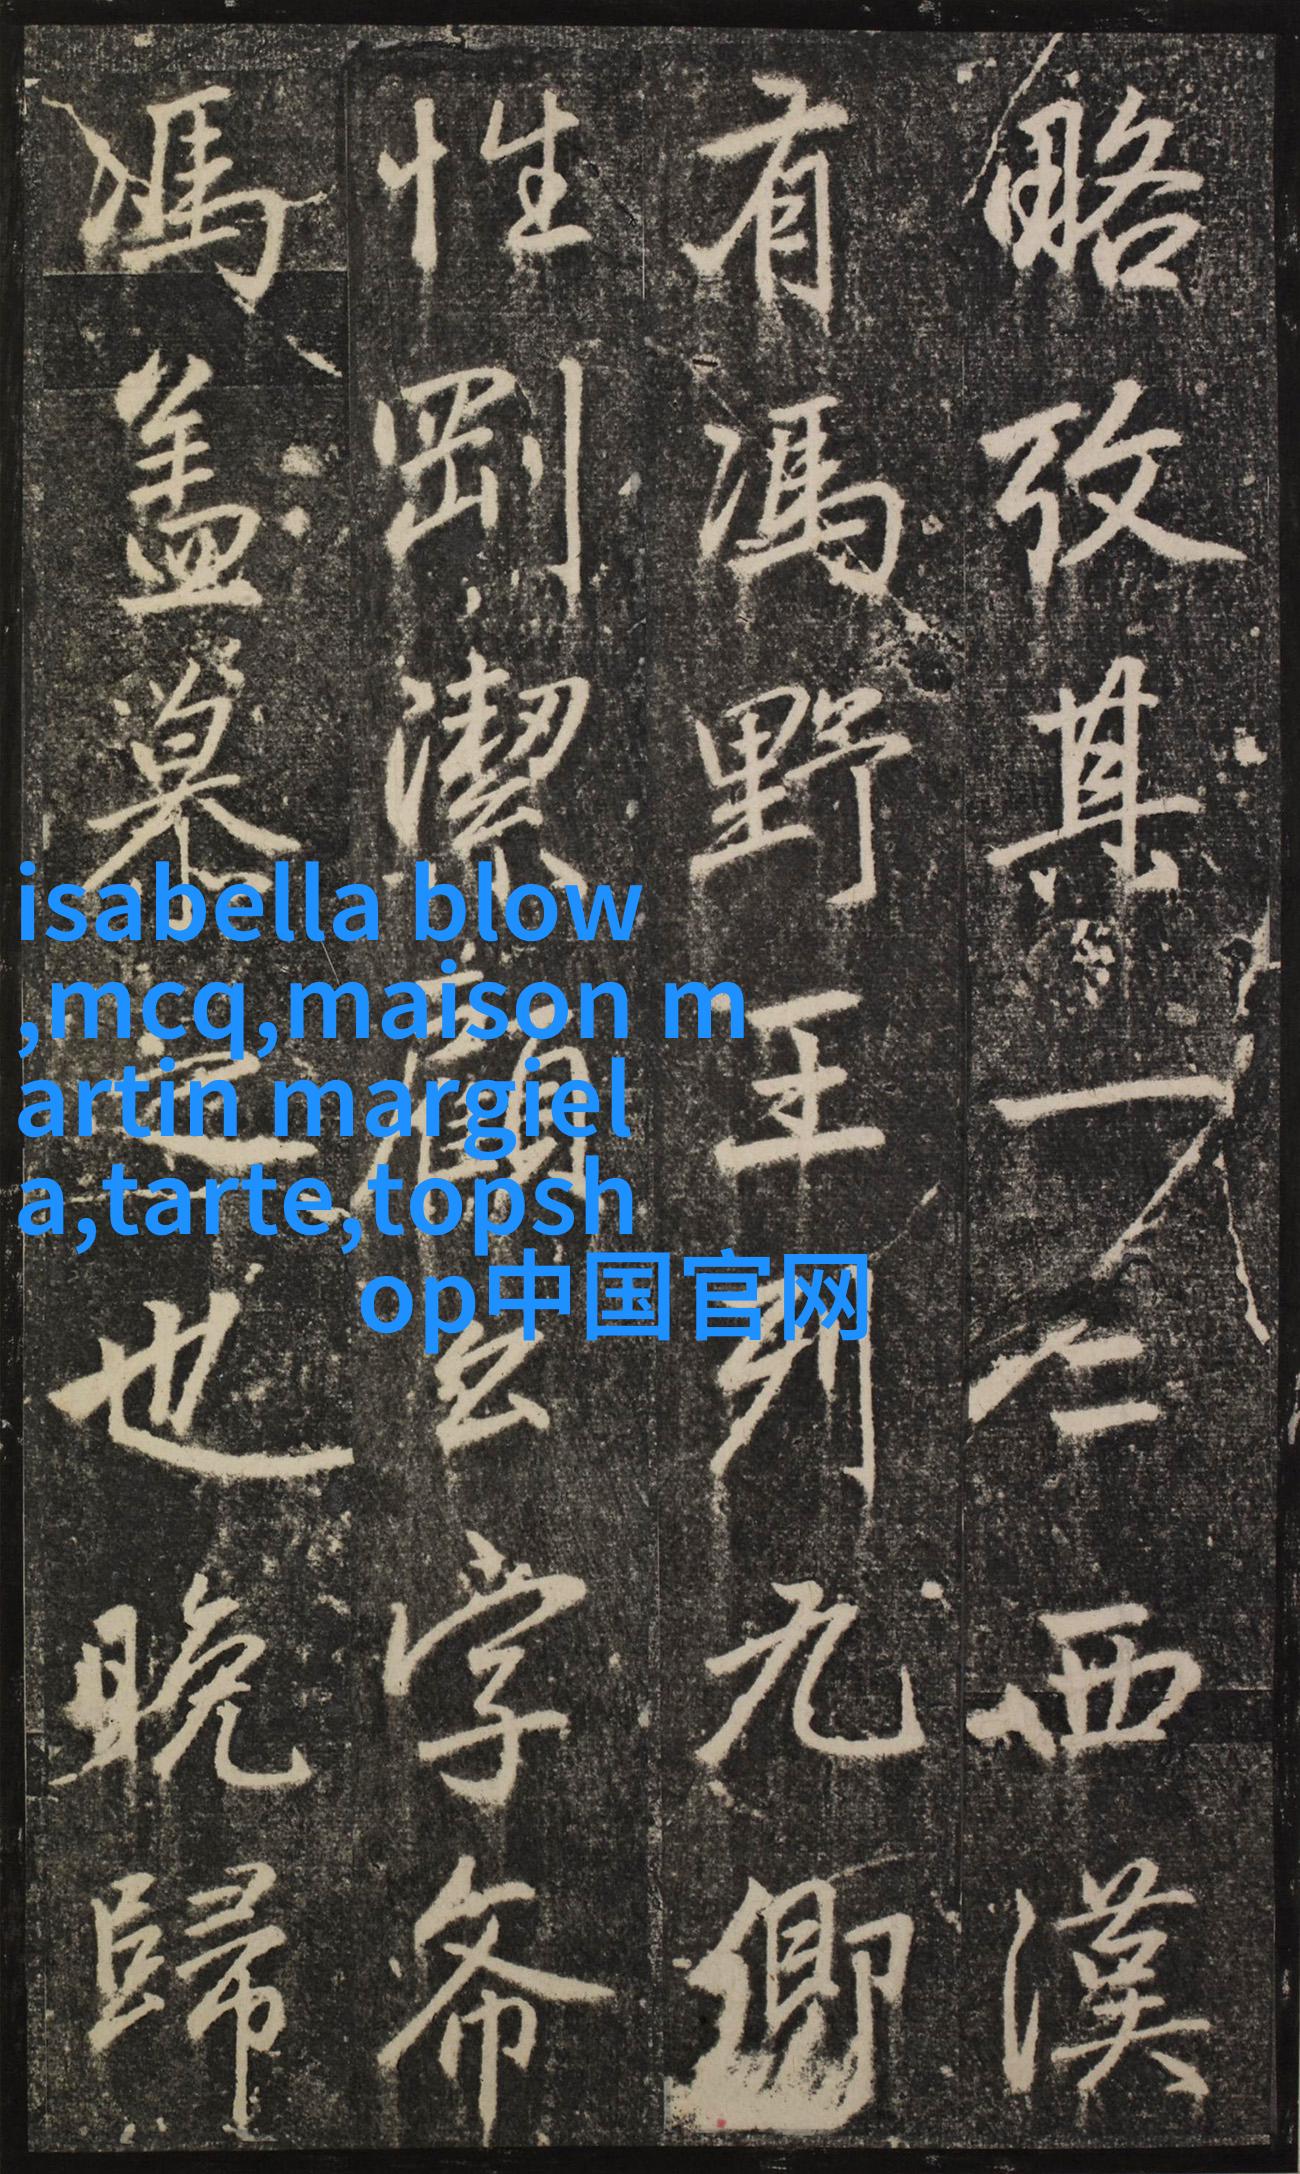 略攷其一西漢
有馮野王列九卿
性剛潔顧公字希
馮盖慕之也晚歸
isabella blow
,mcq,maison m
artin margiel
a,tarte,topsh
op中国官网